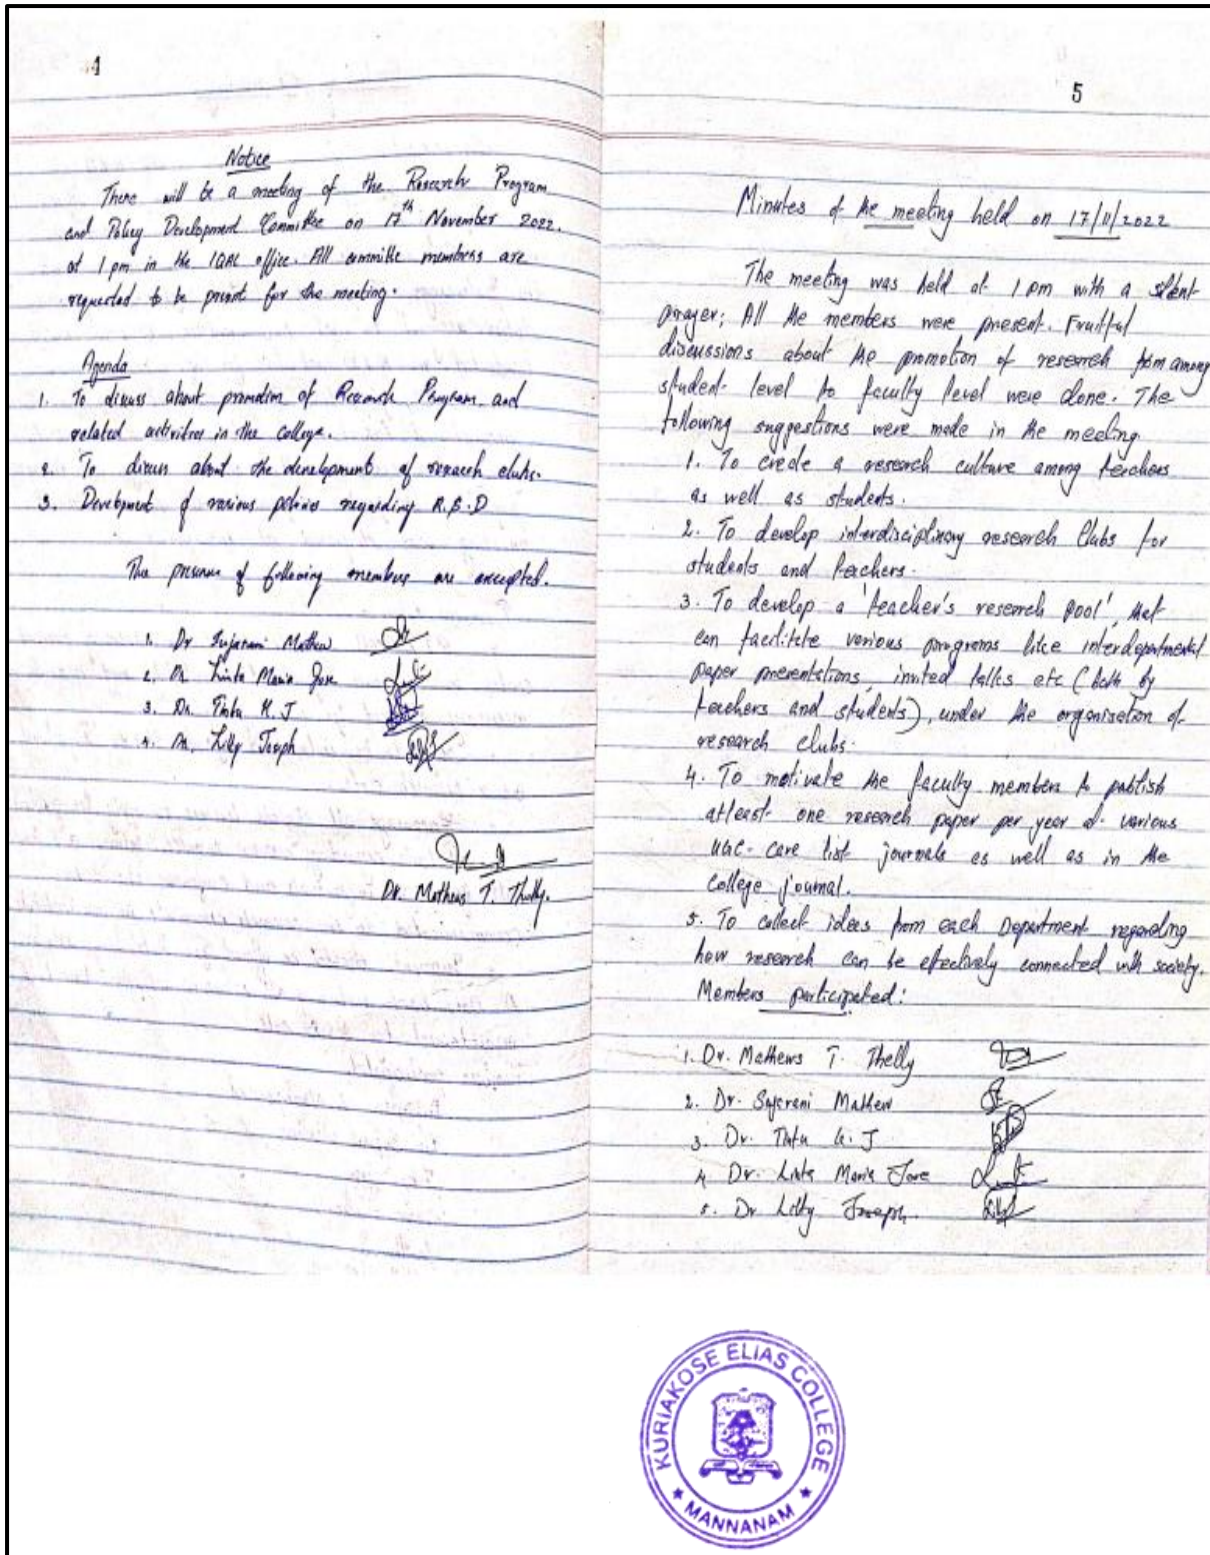 4
Notice
There will be a meeting of the Research Program
and Policy Development Committee on 17th November 2022.
at 1 pm in the IQAC office. All committe members are
requested to be present for the meeting.
Agenda
1. To discuss about promotion of Research Program and
related activities in the college.
2. To discuss about the development of research clubs.
3. Development of various policies regarding R.&.D
The presence of following members are excepted.
1. Dr Sujarani Mathew
2. Dr. Linta Maria Jose
3. Dr. Tintu K. J
4. Dr. Lilly Joseph
Dr. Mathews T. Thelly.
5
Minutes of the meeting held on 17/11/2022
The meeting was held at 1 pm with a silent
prayer; All the members were present. Fruitful
discussions about the promotion of research from among
student level to faculty level were done. The
following suggestions were made in the meeting
1. To create a research culture among teachers
as well as students.
2. To develop interdisciplinary research Clubs for
students and teachers.
3. To develop a 'teacher's research pool', that
can facilitate various programs like interdepartmental
paper presentations, invited talks etc (both by
teachers and students), under the organisation of
research clubs.
4. To motivate the faculty members to publish
atleast one research paper per year at various
UGC-care list journals as well as in the
College journal.
5. To collect ideas from each Department regarding
how research can be effectively connected with society.
Members participated:
1. Dr. Mathews T. Thelly
2. Dr. Sujarani Mathew
3. Dr. Tintu K. J
4. Dr. Linta Maria Jose
5. Dr Lilly Joseph.
KURIAKOSE ELIAS COLLEGE
★ MANNANAM ★